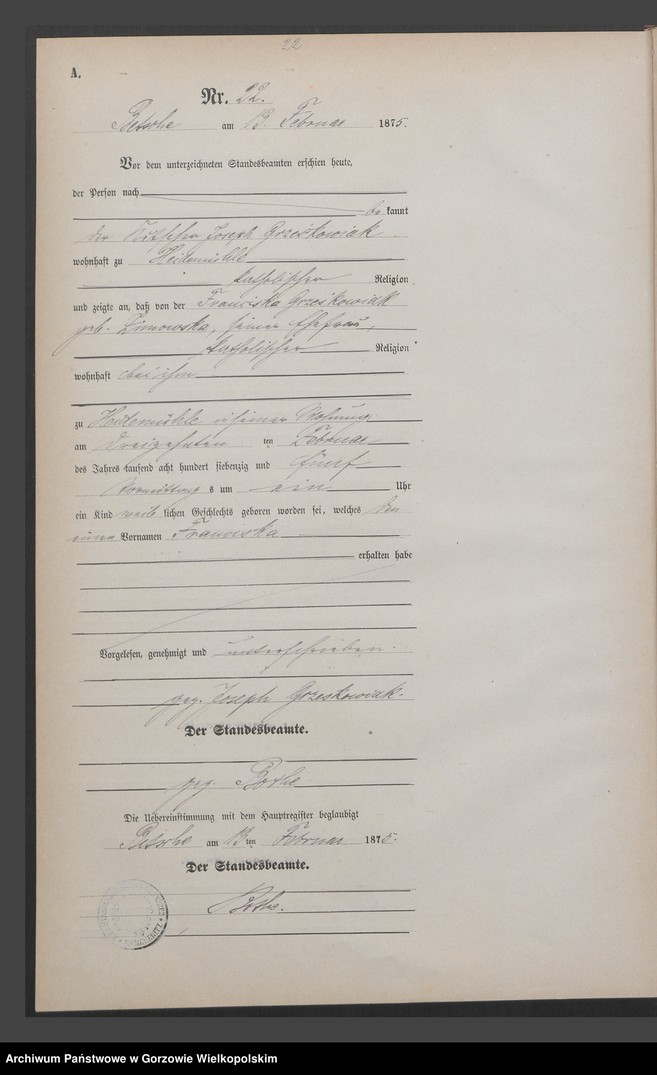 22
A.
Nr. 22.
Betsche am 13. Februar 1875.
Vor dem unterzeichneten Standesbeamten erschien heute,
der Person nach
be kannt
der Joseph Grześkowiak
wohnhaft zu Heidemühle
katholischer Religion
und zeigte an, daß von der Franciska Grześkowiak
geb. Zimowska, seiner Ehefrau,
katholischer Religion
wohnhaft bei ihm
zu Heidemühle in seiner Wohnung
am dreizehnten ten Februar
des Jahres tausend acht hundert siebenzig und fünf
Vormittags um ein Uhr
ein Kind weiblichen Geschlechts geboren worden sei, welches den
Vornamen Franciska
erhalten habe
Vorgelesen, genehmigt und unterschrieben.
gez. Joseph Grzeskowiak.
Der Standesbeamte.
gez. Bothe
Die Uebereinstimmung mit dem Hauptregister beglaubigt
Betsche am 13 ten Februar 1875.
Der Standesbeamte.
Bothe.
Archiwum Państwowe w Gorzowie Wielkopolskim